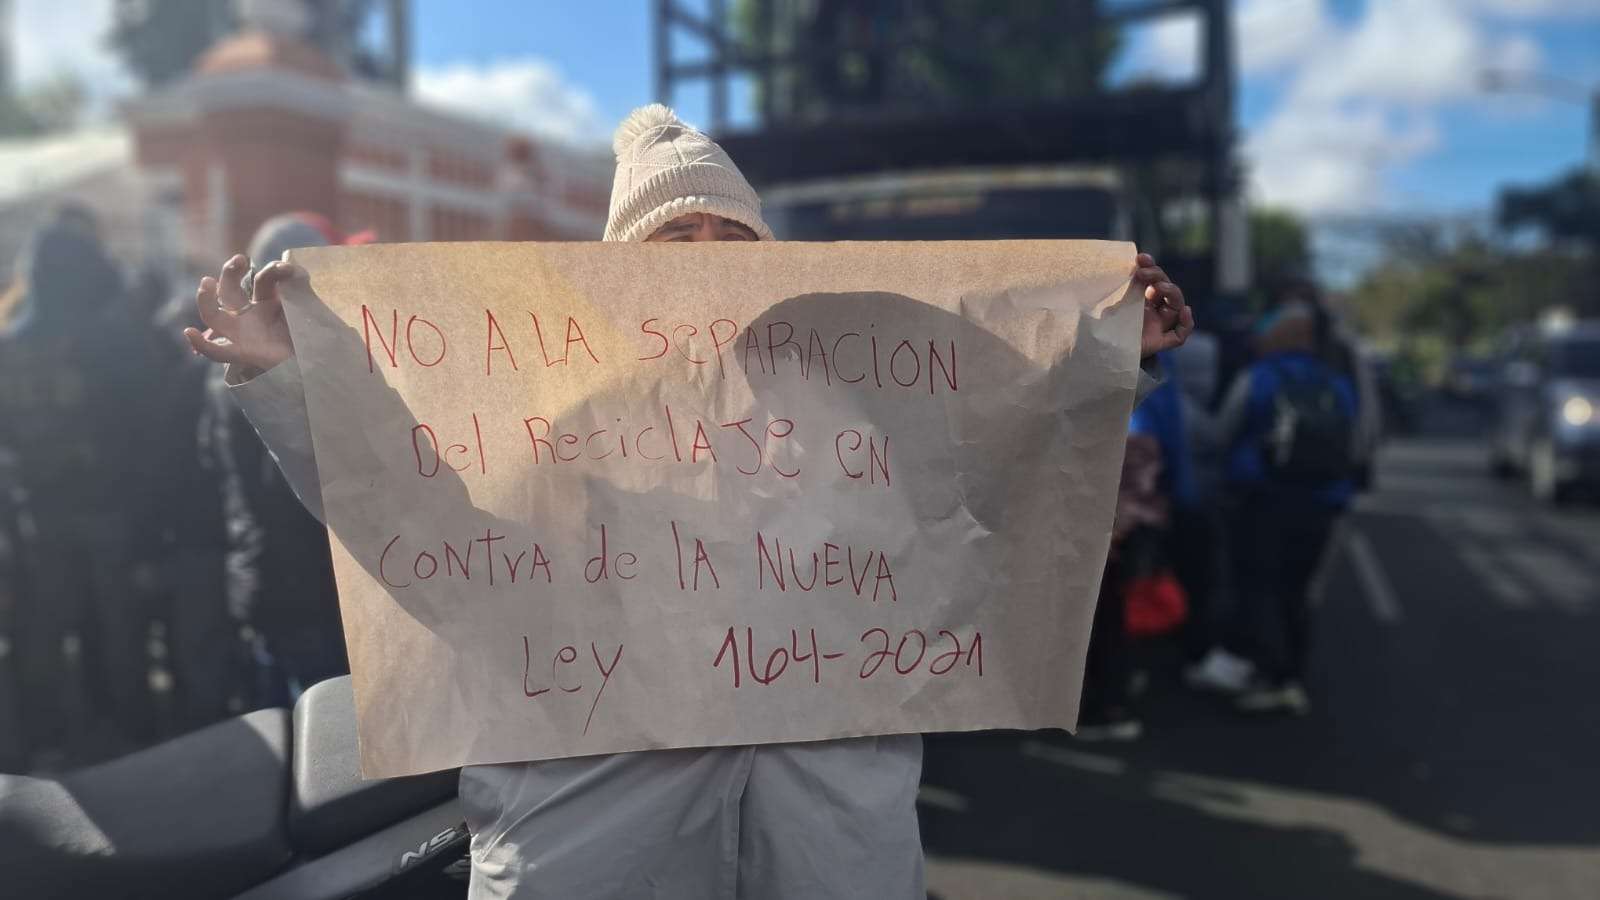 NO A LA SePARACiON
Del ReciclAJe eN
CONTrA de lA NUEVA
Ley 164-2021
NS